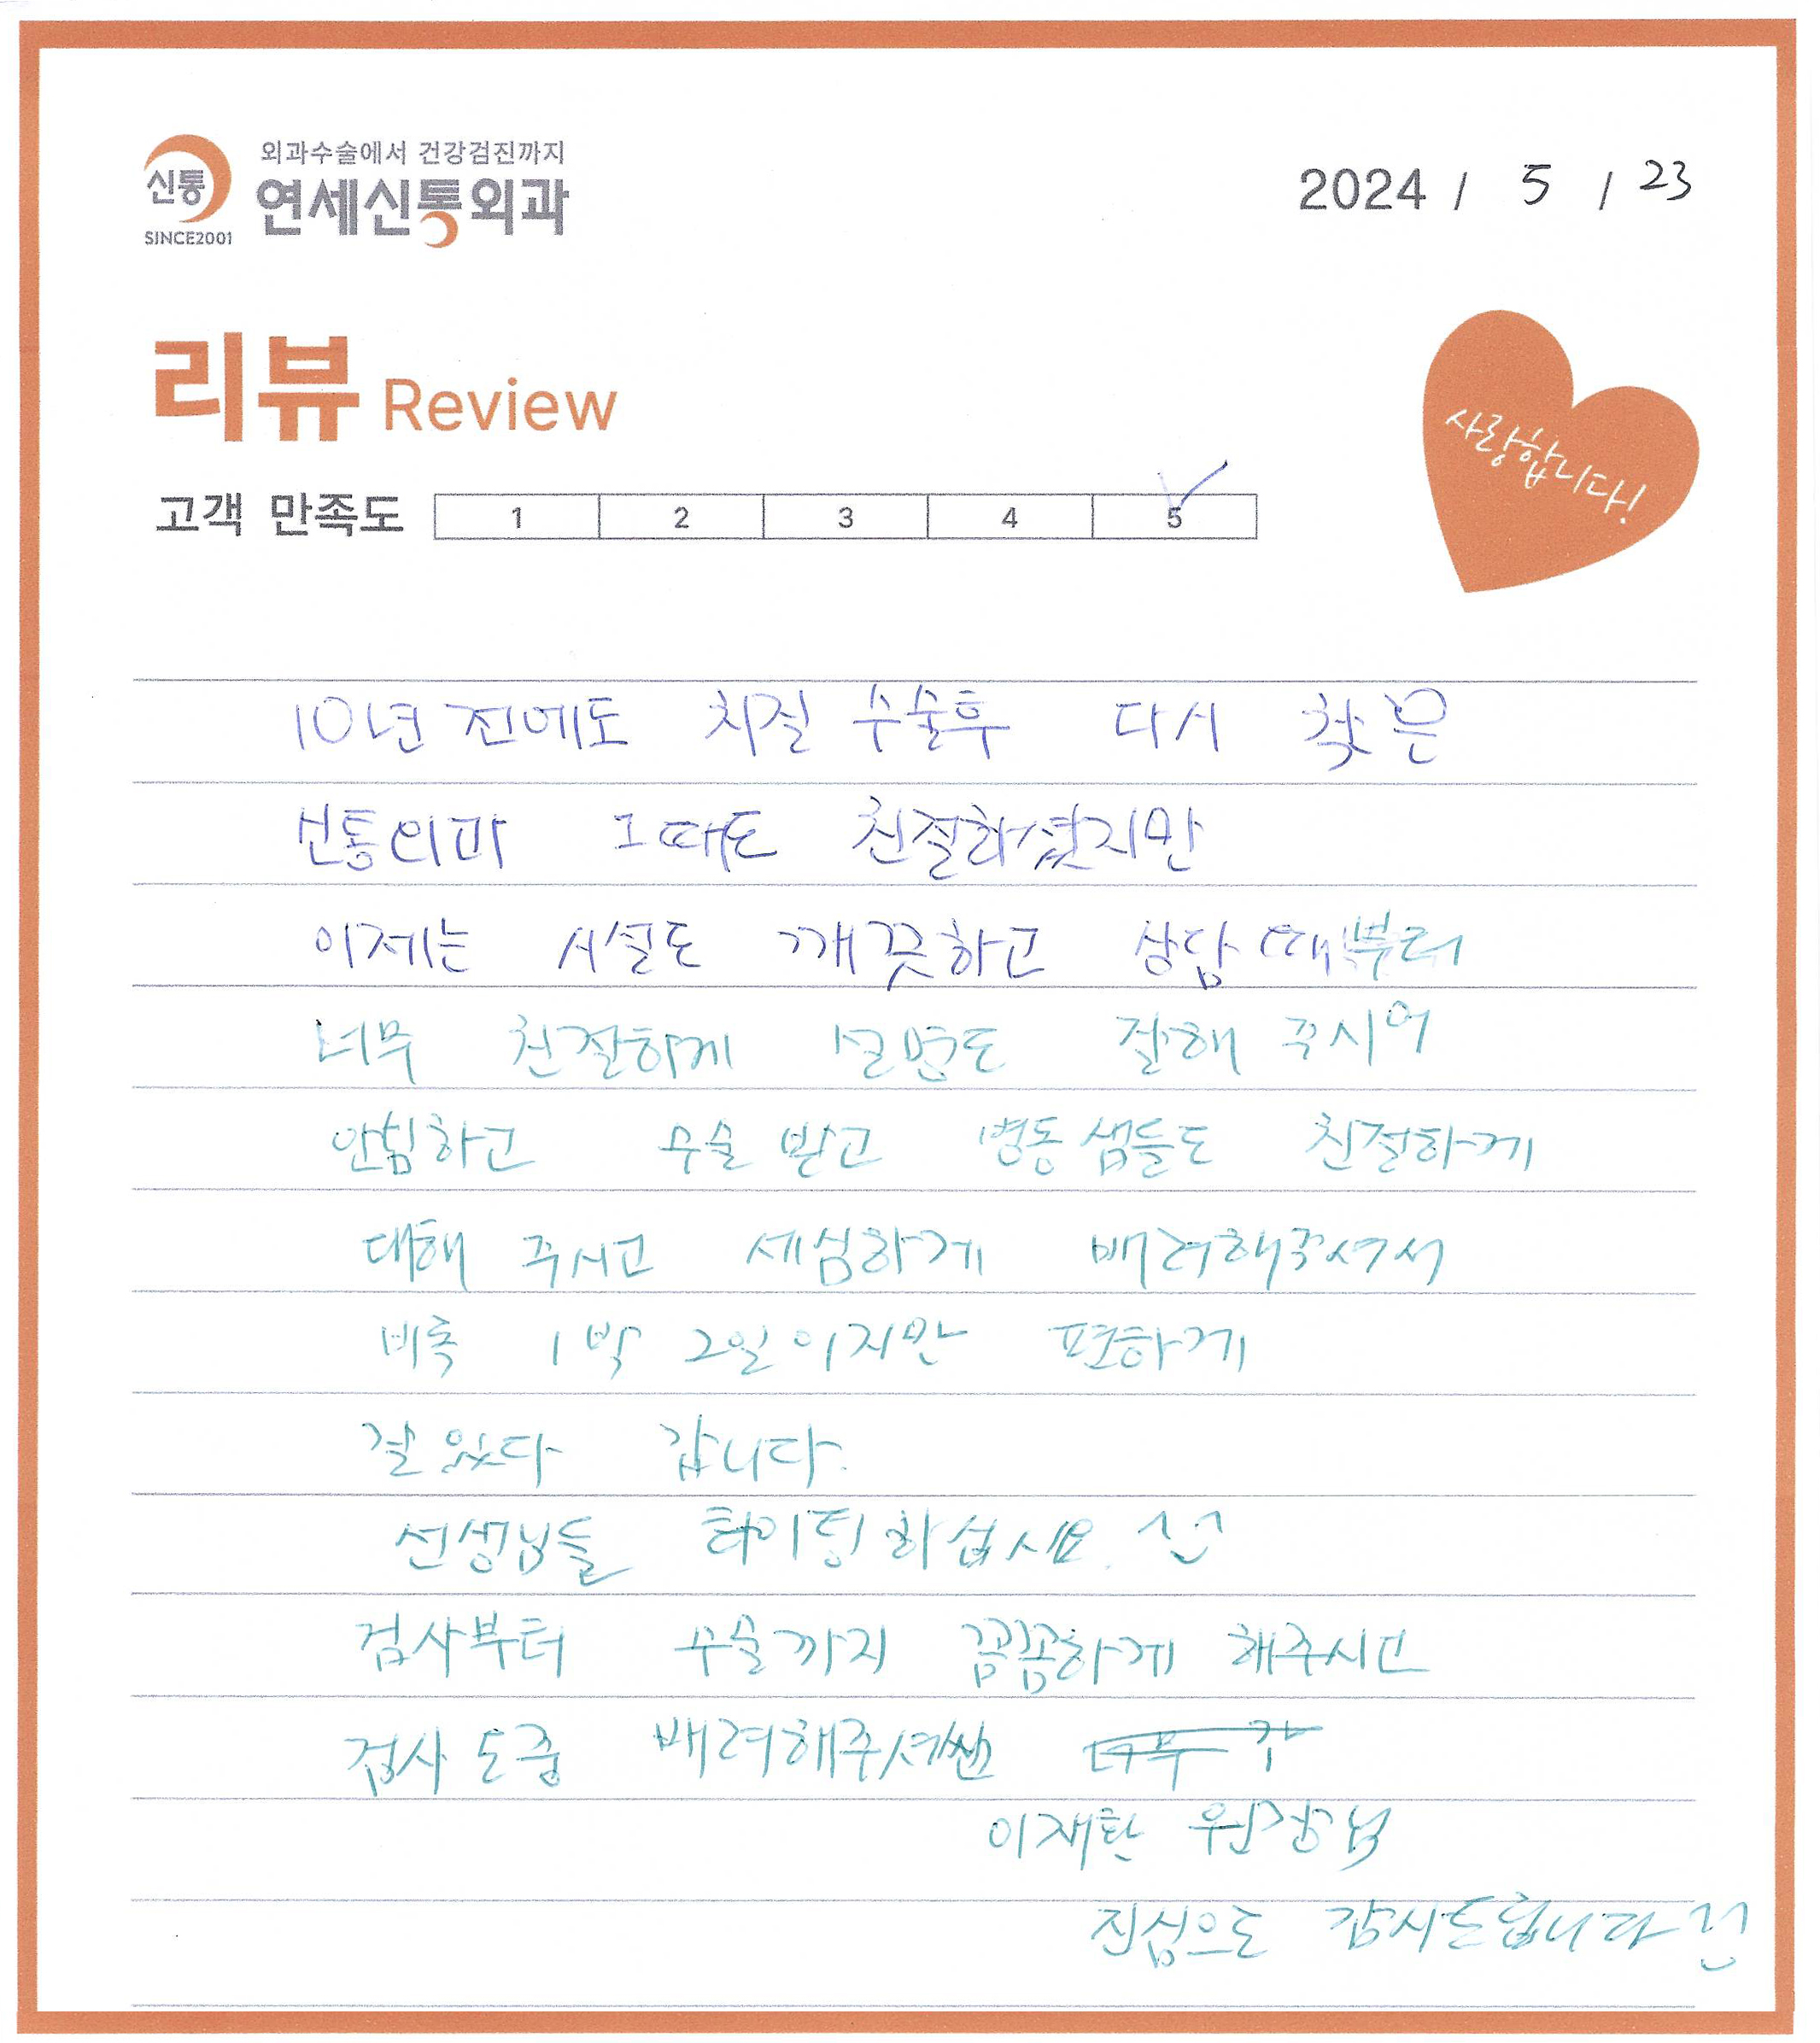 외과수술에서 건강검진까지
신통
연세신통외과
SINCE2001
2024 / 5 / 23
리뷰 Review
사랑합니다!
고객 만족도 1 2 3 4 5
10년 전에도 치질 수술후 다시 찾은
신통외과 그때도 친절하셨지만
이제는 시설도 깨끗하고 상담때부터
너무 친절하게 설명도 잘해 주시어
안심하고 수술 받고 병동 샘들도 친절하게
대해 주시고 세심하게 배려해주셔서
비록 1박 2일이지만 편하게
잘있다 갑니다.
선생님들 화이팅하십시요.
검사부터 수술까지 꼼꼼하게 해주시고
검사 도중 배려해주셔썬 너무
이재한 원장님
진심으로 감사드립니다